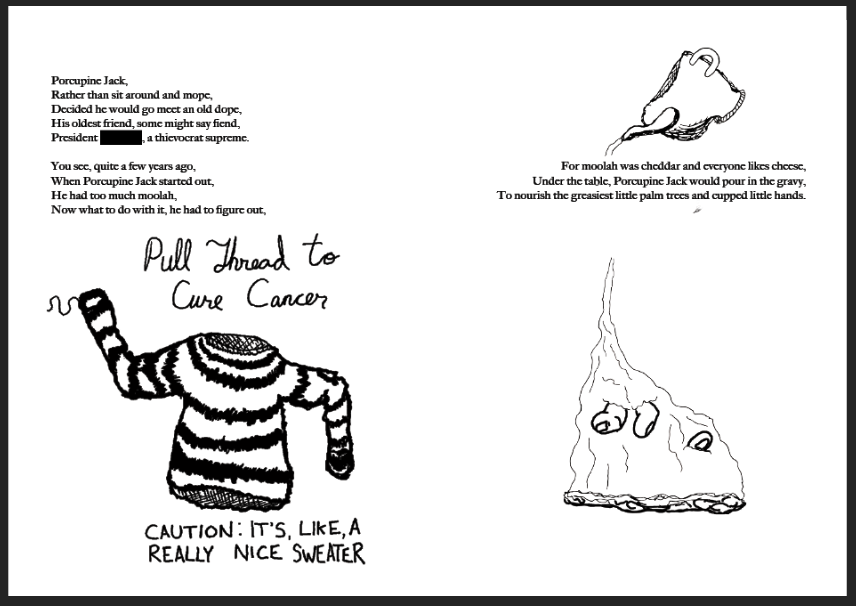 Porcupine Jack,
Rather than sit around and mope,
Decided he would go meet an old dope,
His oldest friend, some might say fiend,
President , a thievocrat supreme.
You see, quite a few years ago,
When Porcupine Jack started out,
He had too much moolah,
Now what to do with it, he had to figure out,
Pull Thread to
Cure Cancer
CAUTION: IT'S, LIKE, A
REALLY NICE SWEATER
For moolah was cheddar and everyone likes cheese,
Under the table, Porcupine Jack would pour in the gravy,
To nourish the greasiest little palm trees and cupped little hands.